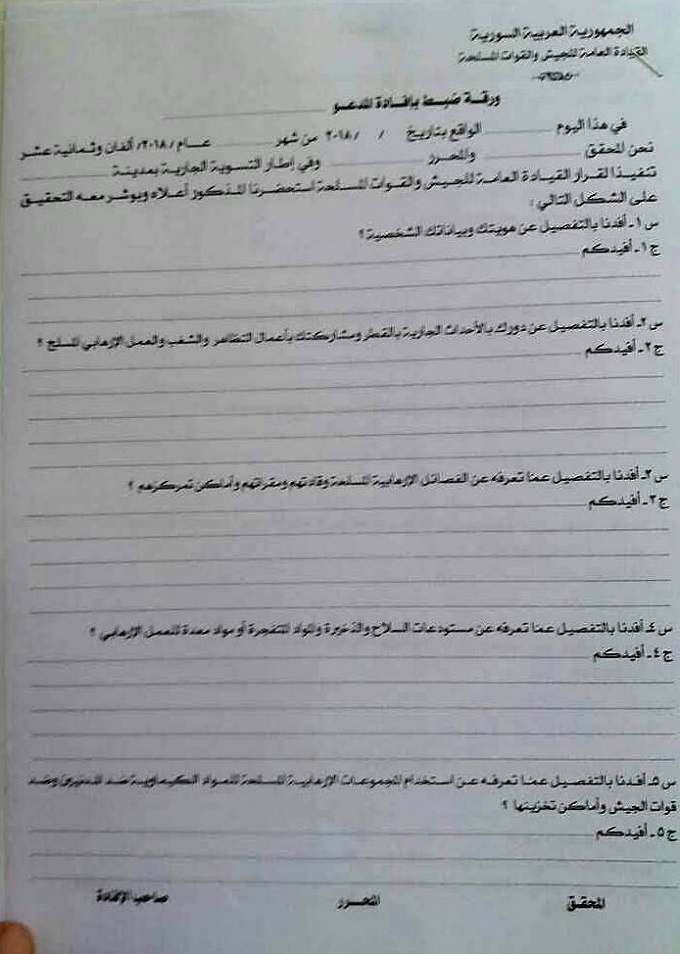 الجمهورية العربية السورية
القيادة العامة للجيش والقوات المسلحة
ورقة ضبط بإفادة المدعو
في هذا اليوم الواقع بتاريخ / / ٢٠١٨ من شهر عام /٢٠١٨/ ألفان وثمانية عشر
نحن المحقق والمحرر وفي إطار التسوية الجارية بمدينة
تنفيذا لقرار القيادة العامة للجيش والقوات المسلحة استحضرنا المذكور أعلاه وبوشر معه التحقيق
على الشكل التالي :
س١ـ أفدنا بالتفصيل عن هويتك وبياناتك الشخصية ؟
ج١ـ أفيدكم
س٢ـ أفدنا بالتفصيل عن دورك بالأحداث الجارية بالقطر ومشاركتك بأعمال التظاهر والشغب والعمل الإرهابي المسلح ؟
ج٢ـ أفيدكم
س٣ـ أفدنا بالتفصيل عما تعرفه عن الفصائل الإرهابية المسلحة وقادتهم ومقراتهم وأماكن تمركزهم ؟
ج٣ـ أفيدكم
س٤ـ أفدنا بالتفصيل عما تعرفه عن مستودعات السلاح والذخيرة والمواد المتفجرة أو مواد معدة للعمل الإرهابي ؟
ج٤ـ أفيدكم
س٥ـ أفدنا بالتفصيل عما تعرفه عن استخدام المجموعات الإرهابية المسلحة للمواد الكيماوية ضد المدنيين وضد
قوات الجيش وأماكن تخزينها ؟
ج٥ـ أفيدكم
المحقق المحرر صاحب الإفادة